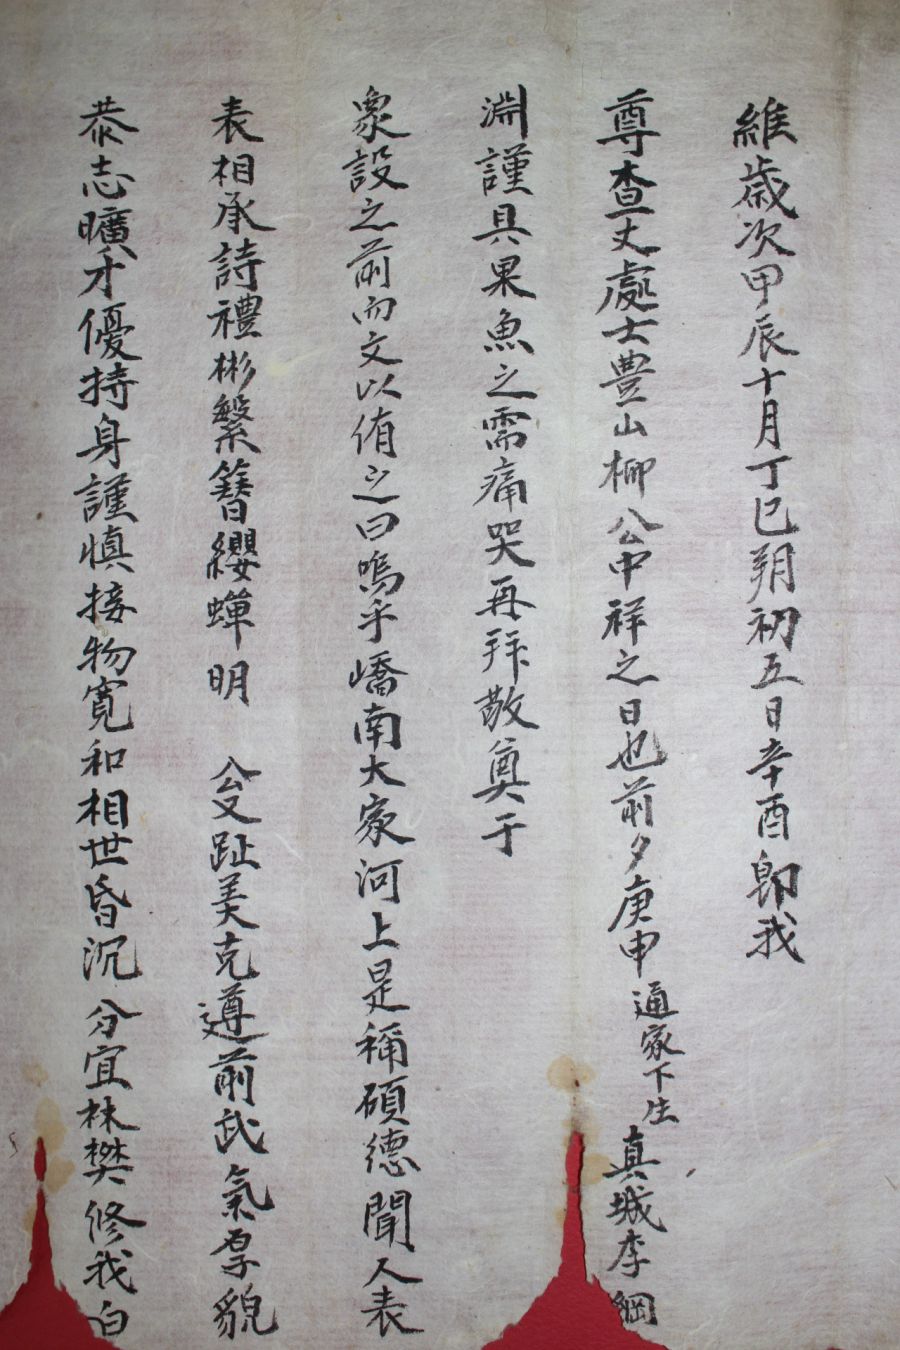 維歲次甲辰十月丁巳朔初五日辛酉卽我
尊查丈處士豊山柳公中祥之日也前夕庚申通家下生真城李綱
淵謹具果魚之需痛哭再拜敬奠于
象設之前而文以侑之曰嗚乎嶠南大家河上是稱碩德聞人表
表相承詩禮彬繄簪纓蟬明 公受趾美克遵前武氣厚貌
恭志曠才優持身謹慎接物寬和相世昏沉分宜林樊修我白